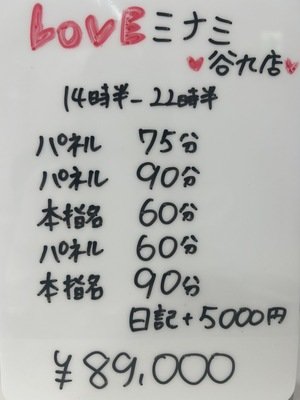 LOVEミナミ
♥谷九店♥
14時半-22時半
パネル 75分
パネル 90分
本指名 60分
パネル 60分
本指名 90分
日記+5000円
¥89,000